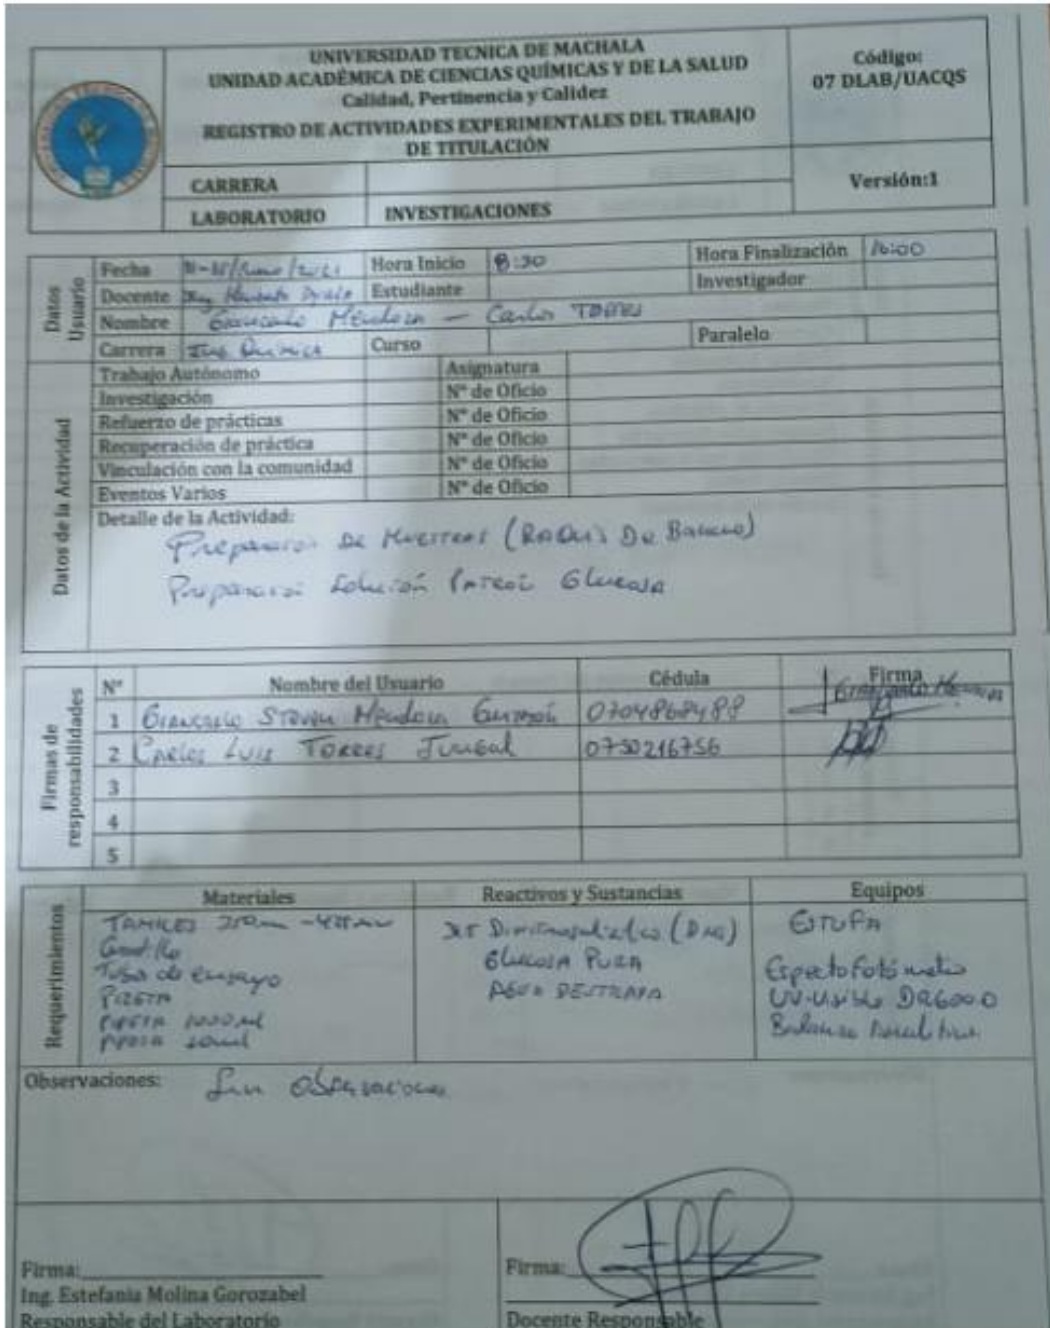 UNIVERSIDAD TECNICA DE MACHALA
UNIDAD ACADÉMICA DE CIENCIAS QUÍMICAS Y DE LA SALUD
Calidad, Pertinencia y Calidez
REGISTRO DE ACTIVIDADES EXPERIMENTALES DEL TRABAJO
DE TITULACIÓN
Código:
07 DLAB/UACQS
CARRERA
Versión:1
LABORATORIO INVESTIGACIONES
Datos Usuario
Fecha Hora Inicio 8:30 Hora Finalización 16:00
Docente Estudiante Investigador
Nombre Giancarlo Mendoza - Carlos TORRES
Carrera Ing Química Curso Paralelo
Datos de la Actividad
Trabajo Autónomo Asignatura
Investigación N° de Oficio
Refuerzo de prácticas N° de Oficio
Recuperación de práctica N° de Oficio
Vinculación con la comunidad N° de Oficio
Eventos Varios N° de Oficio
Detalle de la Actividad:
Preparación de Muestras (Raquis De Banano)
Preparación Solución Patrón Glucosa
Firmas de responsabilidades
N° Nombre del Usuario Cédula Firma
1 Giancarlo Steven Mendoza 0704868488
2 Carlos Luis Torres 0750216756
3
4
5
Requerimientos
Materiales Reactivos y Sustancias Equipos
TAMICES
Gradilla
Tubo de ensayo
PIZETA
PIPETA
GLUCOSA PURA
AGUA
ESTUFA
Espectofotómetro
UV-Visible DR6000
Balanza
Observaciones: Sin Observaciones
Firma:
Ing. Estefania Molina Gorozabel
Responsable del Laboratorio
Firma:
Docente Responsable